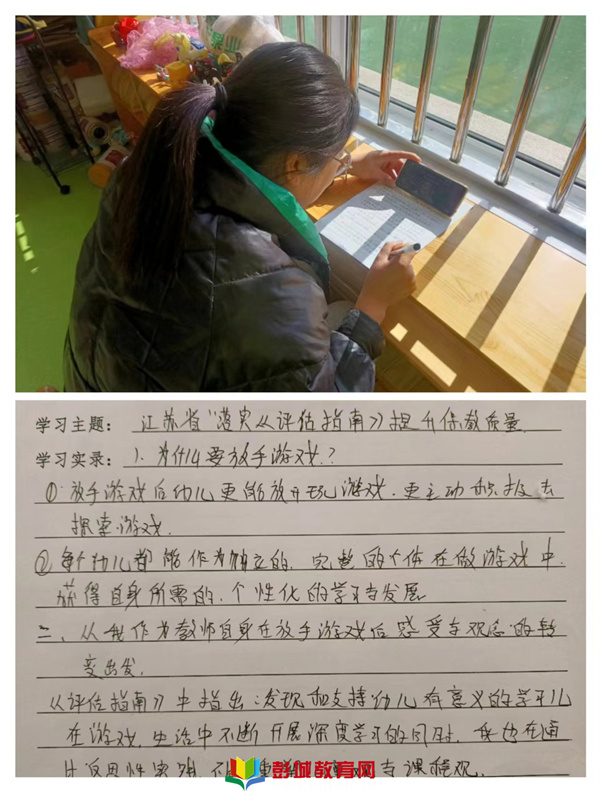 学习主题： 江苏省“落实《评估指南》》提升保教质量
学习实录： 1、为什么要放手游戏？
①放手游戏后幼儿更能放开玩游戏，更主动积极去
探索游戏.
②每个幼儿都能作为独立的、完整的个体在做游戏中.
获得自身所需的、个性化的学习与发展
二、从我作为教师自身在放手游戏后感受与观念的转
变出发.
《评估指南》中指出：发现和支持幼儿有意义的学习儿
在游戏、生活中不断开展深度学习的同时，我也在通
与课程观.
彭城教育网